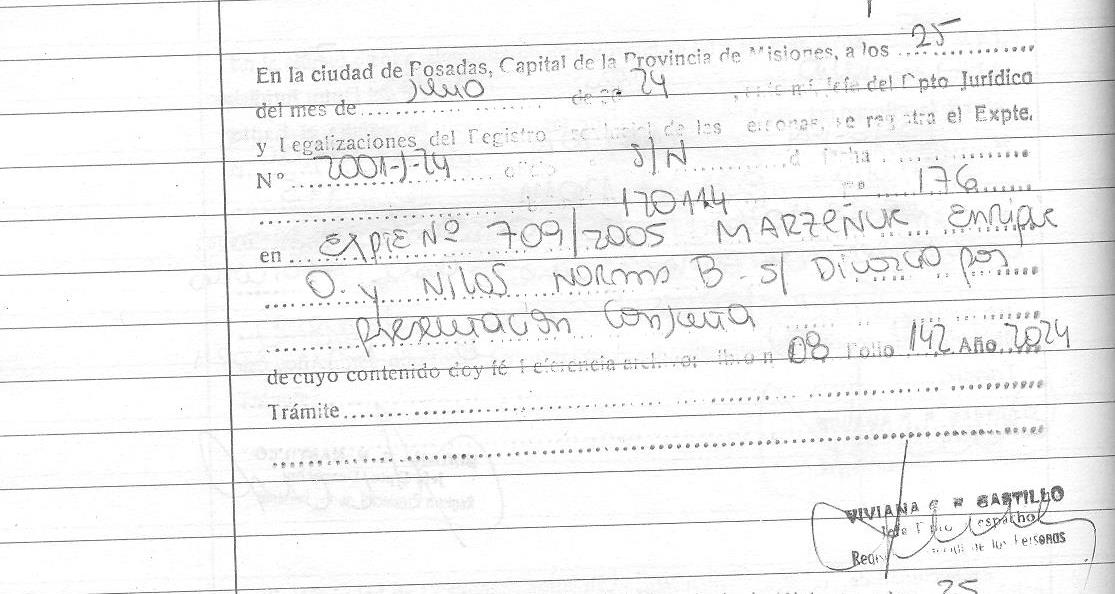 En la ciudad de Posadas, Capital de la Provincia de Misiones, a los 25
del mes de Julio de 20 24, Jefe del Dpto Jurídico
y Legalizaciones del Registro Provincial de las Personas, se registra el Expte.
N° 2001-J-24 oficio S/N de fecha
120114 N° 176
en EXPTE Nº 709/2005 MARZEÑUK Enrique
O. y NILOS NORMA B. s/ Divorcio por
presentación Conjunta
de cuyo contenido doy fé Referencia archivo: libro n° 08 Folio 142 Año 2024
Trámite
VIVIANA CASTILLO
Jefe Dpto Despacho
Registro Provincial de las Personas
25